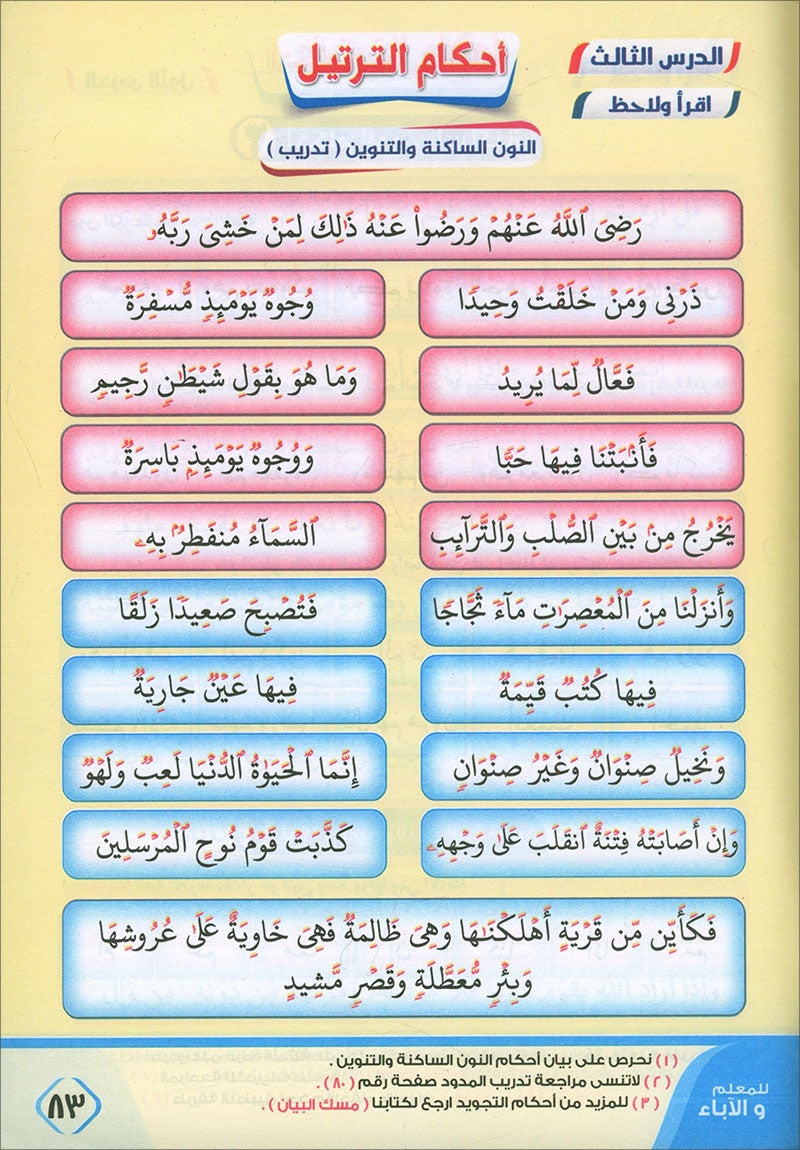 الدرس الثالث
أحكام الترتيل
اقرأ ولاحظ
النون الساكنة والتنوين ( تدريب )
رَضِىَ ٱللَّهُ عَنۡهُمۡ وَرَضُواْ عَنۡهُ ذَٰلِكَ لِمَنۡ خَشِىَ رَبَّهُۥ
ذَرۡنِى وَمَنۡ خَلَقۡتُ وَحِيدٗا
وُجُوهٞ يَوۡمَئِذٖ مُّسۡفِرَةٞ
فَعَّالٞ لِّمَا يُرِيدُ
وَمَا هُوَ بِقَوۡلِ شَيۡطَٰنٖ رَّجِيمٖ
فَأَنۢبَتۡنَا فِيهَا حَبّٗا
وَوُجُوهٞ يَوۡمَئِذِۭ بَاسِرَةٞ
يَخۡرُجُ مِنۢ بَيۡنِ ٱلصُّلۡبِ وَٱلتَّرَآئِبِ
ٱلسَّمَآءُ مُنفَطِرُۢ بِهِۦ
وَأَنزَلۡنَا مِنَ ٱلۡمُعۡصِرَٰتِ مَآءٗ ثَجَّاجٗا
فَتُصۡبِحَ صَعِيدٗا زَلَقٗا
فِيهَا كُتُبٞ قَيِّمَةٞ
فِيهَا عَيۡنٞ جَارِيَةٞ
وَنَخِيلٞ صِنۡوَانٞ وَغَيۡرُ صِنۡوَانٖ
إِنَّمَا ٱلۡحَيَوٰةُ ٱلدُّنۡيَا لَعِبٞ وَلَهۡوٞ
وَإِنۡ أَصَابَتۡهُ فِتۡنَةٌ ٱنقَلَبَ عَلَىٰ وَجۡهِهِۦ
كَذَّبَتۡ قَوۡمُ نُوحٍ ٱلۡمُرۡسَلِينَ
فَكَأَيِّن مِّن قَرۡيَةٍ أَهۡلَكۡنَٰهَا وَهِىَ ظَالِمَةٞ فَهِىَ خَاوِيَةٌ عَلَىٰ عُرُوشِهَا
وَبِئۡرٖ مُّعَطَّلَةٖ وَقَصۡرٖ مَّشِيدٍ
للمعلم
و الآباء
(١) نحرص على بيان أحكام النون الساكنة والتنوين .
(٢) لاتنسى مراجعة تدريب المدود صفحة رقم (٨٠) .
(٣) للمزيد من أحكام التجويد ارجع لكتابنا ( مسك البيان ) .
٨٣